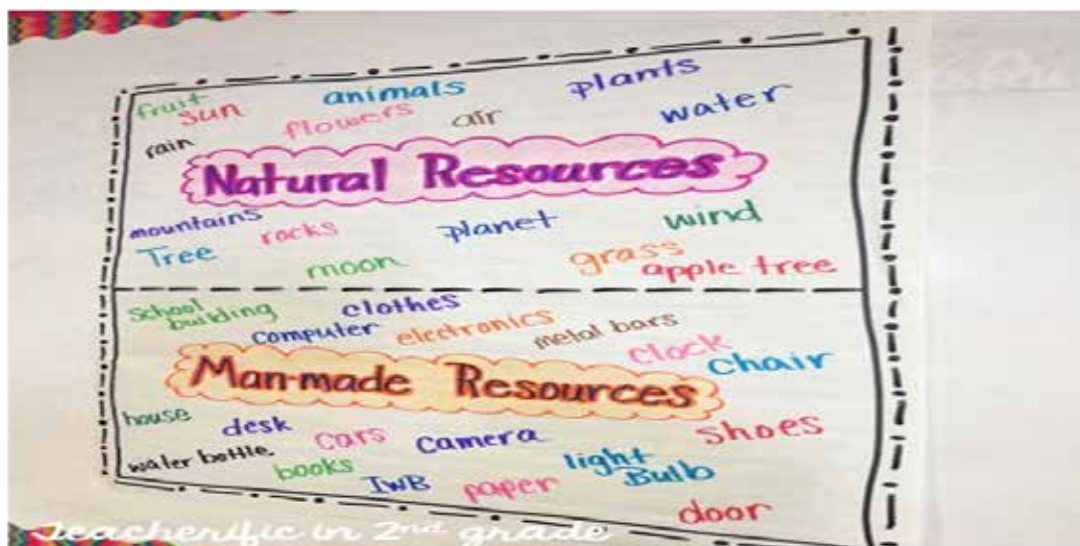 fruit sun animals plants
flowers air water
rain
Natural Resources
mountains rocks planet wind
Tree moon grass apple tree
school building clothes
computer electronics metal bars clock chair
Man-made Resources
house desk cars camera shoes
water bottle books IWB paper light Bulb
door
Teacherific in 2nd grade